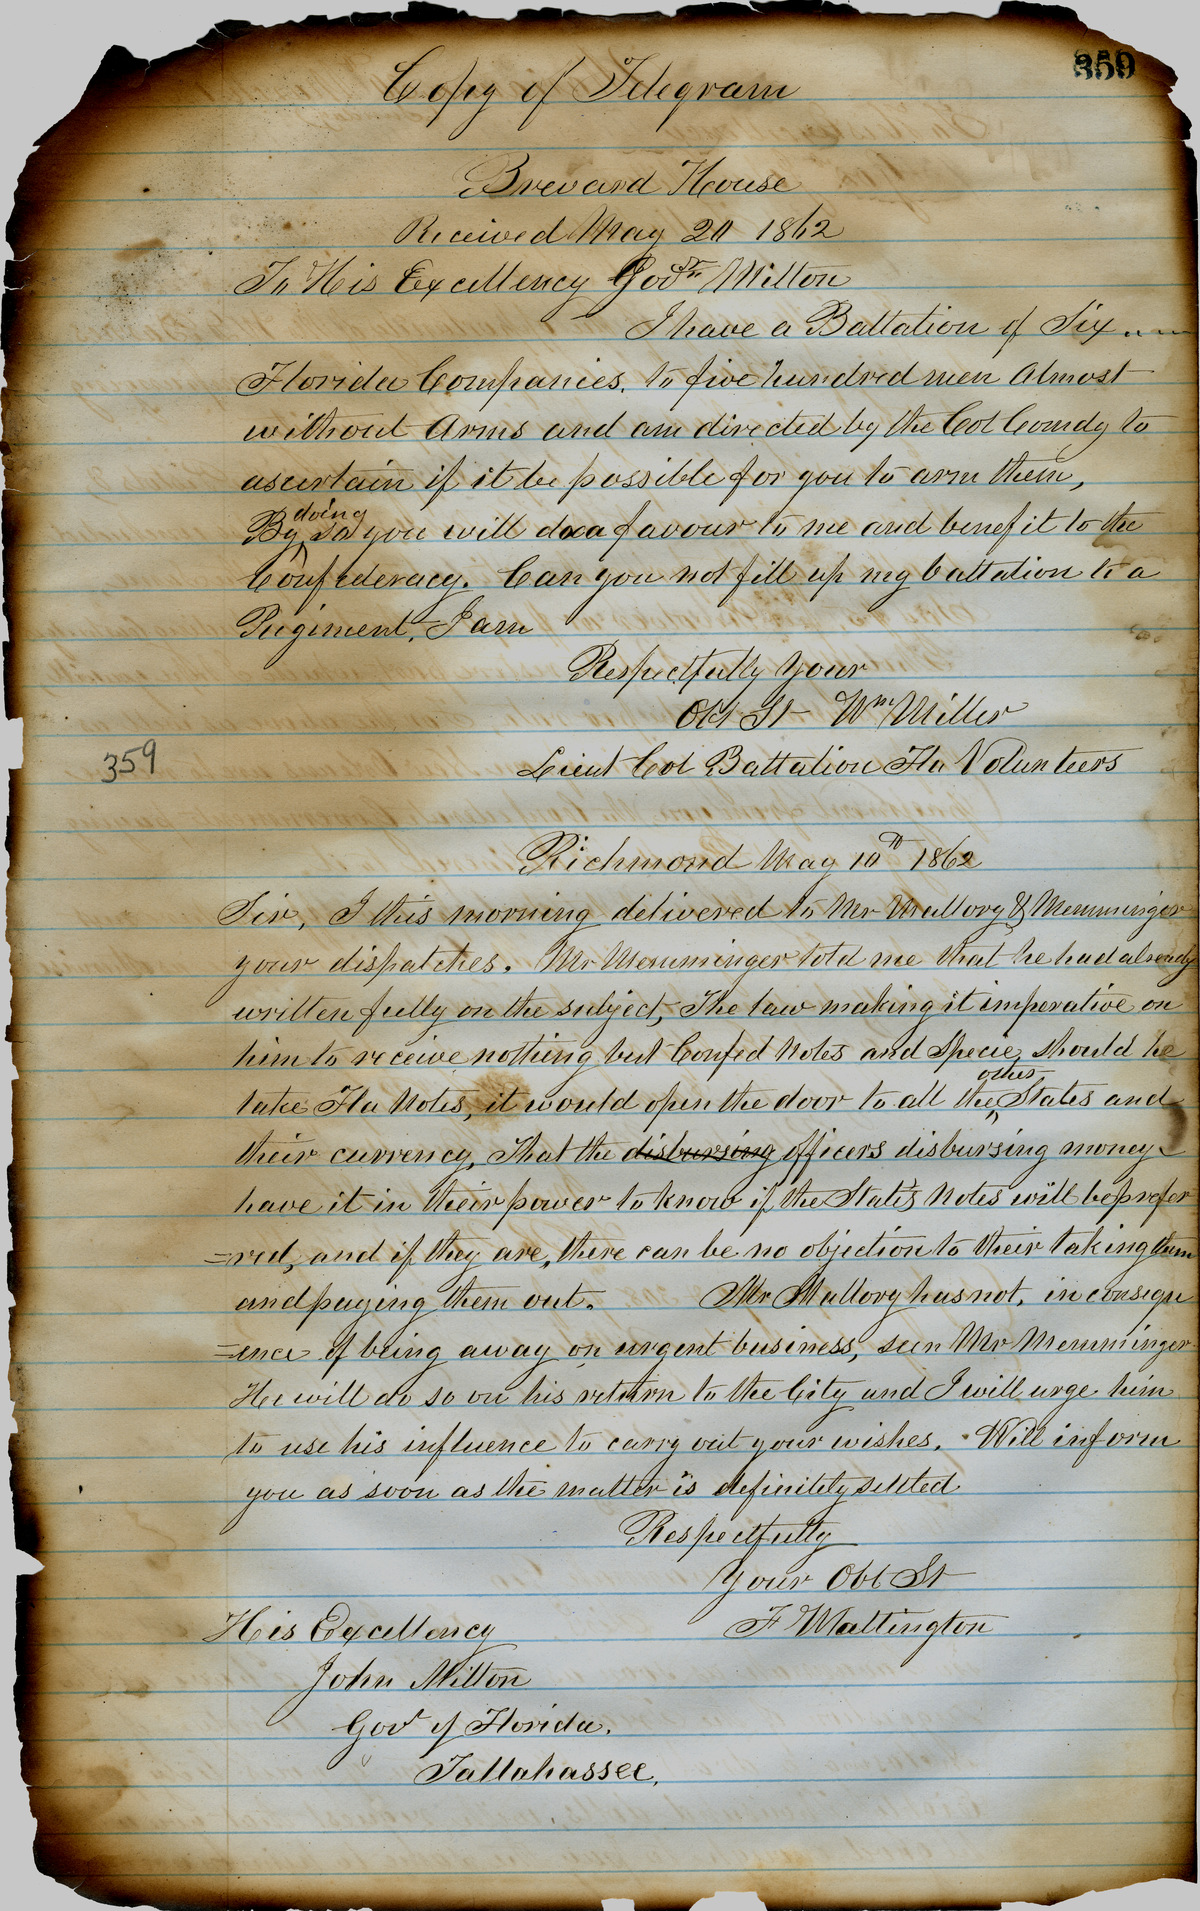 359
Copy of Telegram
Brevard House
Received May 20 1862
To His Excellency Govr Milton
I have a Battalion of Six
Florida Companies, to five hundred men almost
without Arms and am directed by the Col Comdg to
ascertain if it be possible for you to arm them,
By doing so you will do a favour to me and benefit to the
Confederacy. Can you not fill up my battalion to a
Regiment, I am
Respectfully Your
Obt St Wm Miller
Lieut Col Battalion Fla Volunteers
359
Richmond May 10th 1862
Sir, I this morning delivered to Mr Mallory & Memminger
your dispatches. Mr Memminger told me that he had already
written fully on the subject, The law making it imperative on
him to receive nothing but Confed Notes and Specie, should he
take Fla Notes, it would open the door to all the other States and
their currency, That the disbursing officers disbursing money
have it in their power to know if the State's Notes will be prefer
=red, and if they are, there can be no objection to their taking them
and paying them out. Mr Mallory has not, in consequ
=ence of being away on urgent business, seen Mr Memminger
He will do so on his return to the City and I will urge him
to use his influence to carry out your wishes. Will inform
you as soon as the matter is definitely settled
Respectfully
Your Obt St
F Waltington
His Excellency
John Milton
Govr of Florida.
Tallahassee,